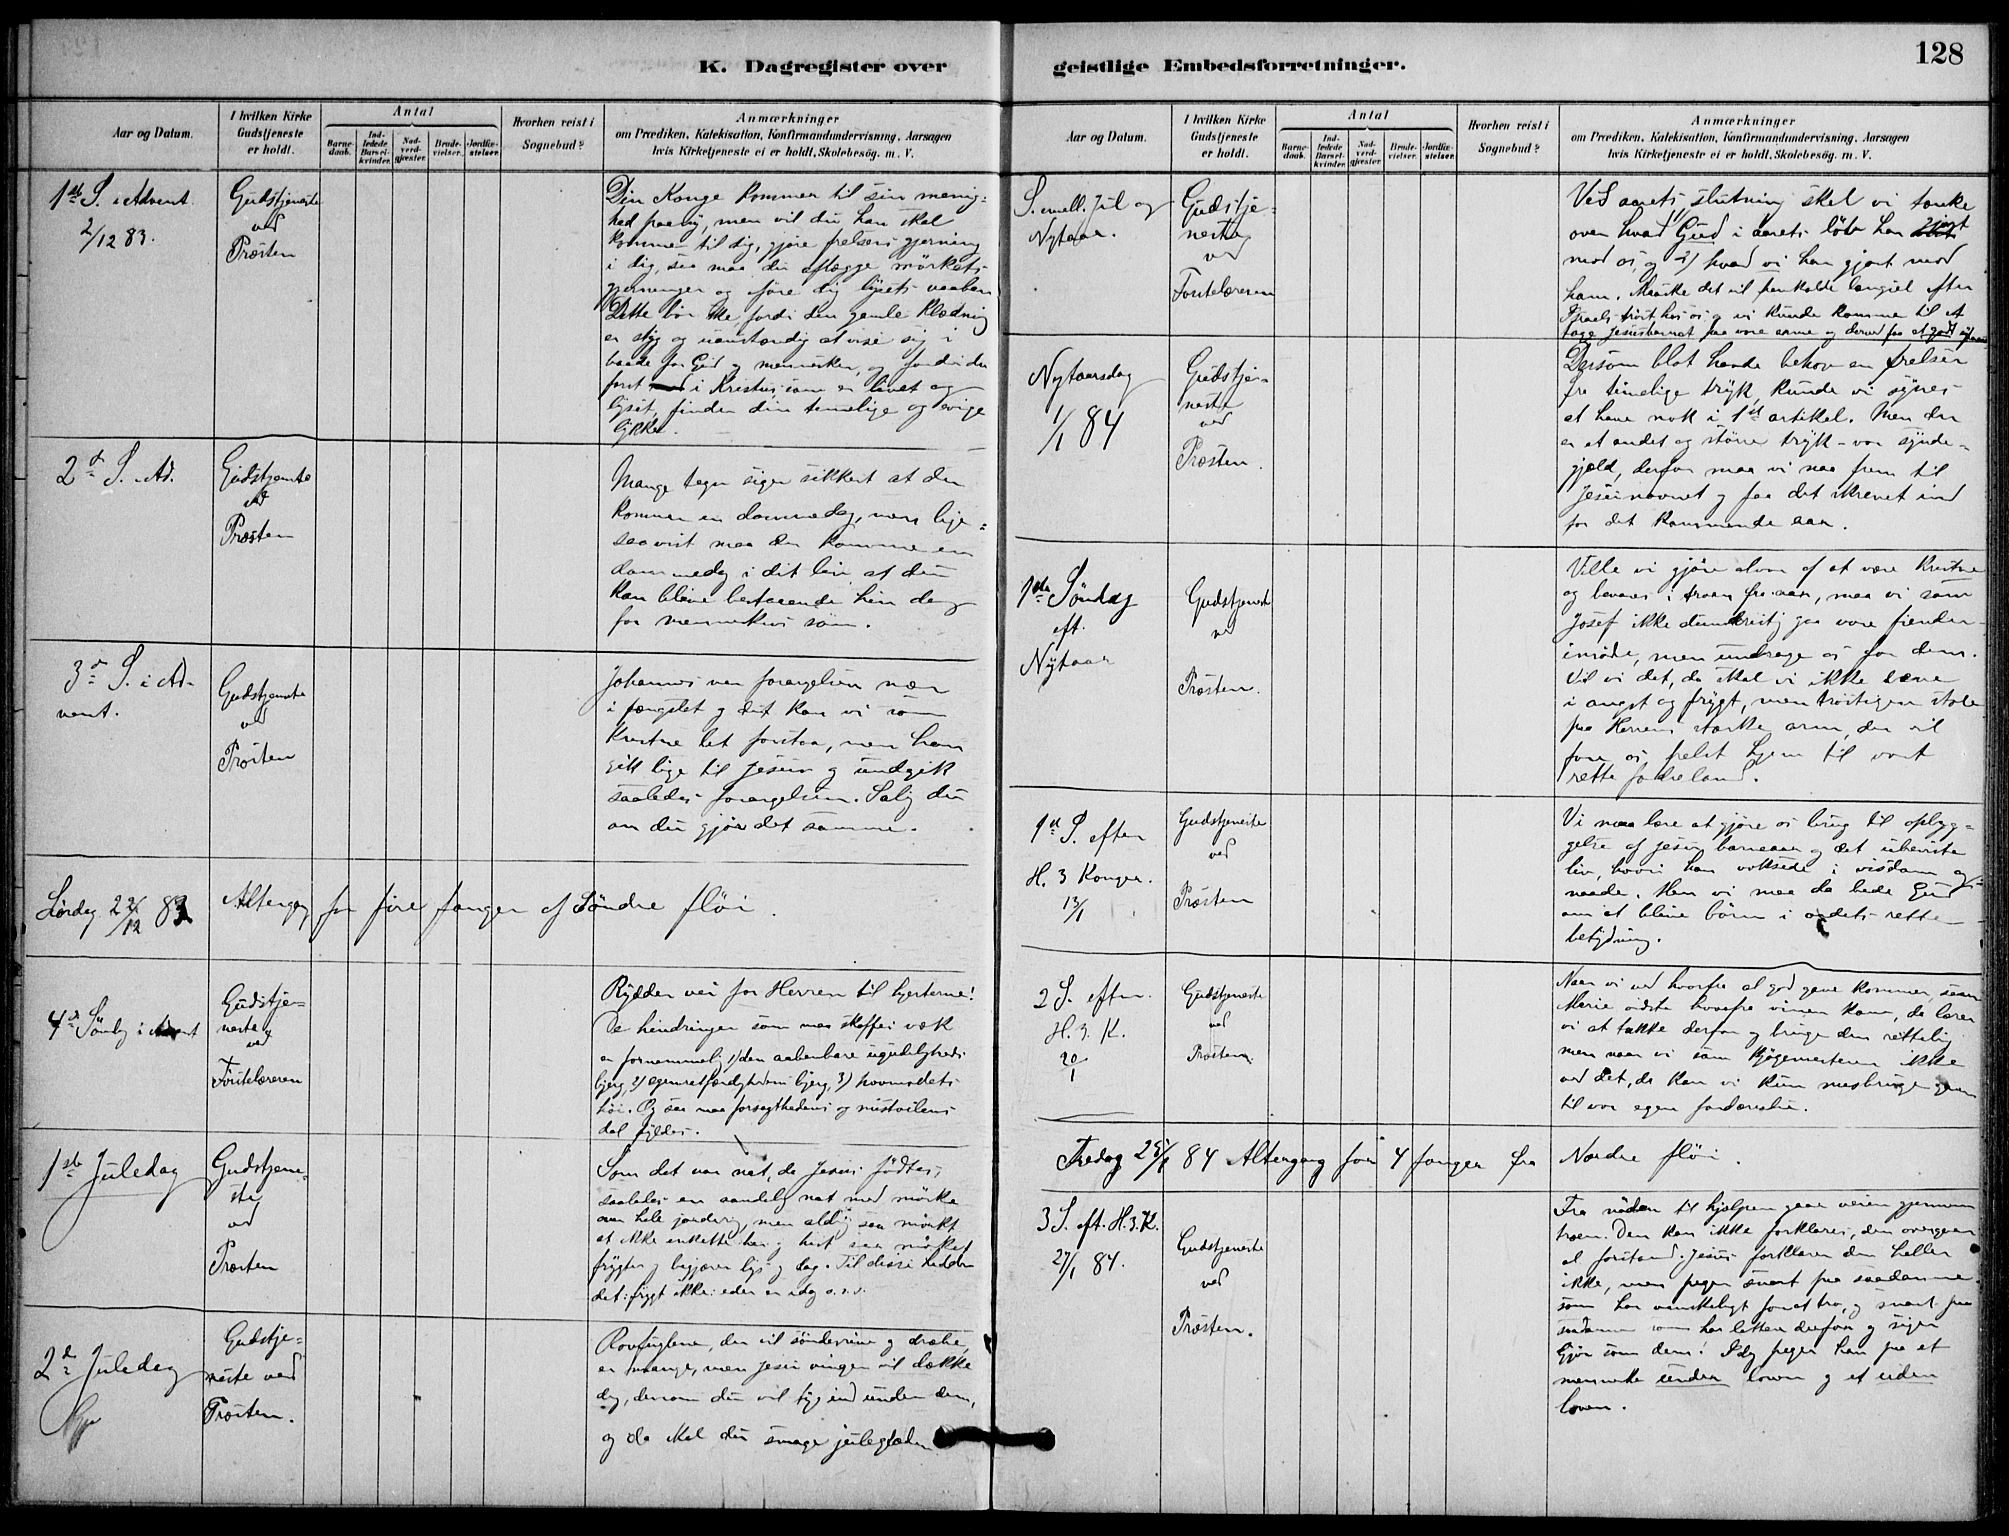 128
K. Dagregister over
geistlige Embedsforretninger.
Aar og Datum.
I hvilken Kirke
Gudstjeneste
er holdt.
Antal
Barne-
daab.
Ind-
ledede
Barsel-
kvinder.
Nad-
verd-
gjester.
Brude-
vielser.
Jordfæ-
stelser.
Hvorhen reist i
Sognebud?
Anmærkninger
om Prædiken, Katekisation, Konfirmandundervisning, Aarsagen
hvis Kirketjeneste ei er holdt, Skolebesög. m. V.
1ste S. i Advent
2/12 83.
Gudstjeneste
ved
Præsten
Din Konge kommer til sin menig-
hed paany, men vil du han skal
komme til dig, gjøre frelsens gjerning
i dig, saa maa du aflægge mörkets
gjerninger og iføre dig lysets vaaben
Dette bør ske fordi den gamle klædning
er styg og uanstændig at vise sig i
baade for Gud og mennesker, og fordi du
først i Kristus, som er livet og
lyset, finder din timelige og evige
lykke.
2d S. Ad.
Gudstjeneste
ved
Præsten
Mange tegn siger sikkert at der
kommer en dommedag, men lige-
saavist maa der komme en
dommedag i dit liv, at du
kan blive bestaaende hin dag
for menneskens søn.
3d S. i Ad-
vent.
Gudstjeneste
ved
Præsten
Johannes var forargelsen nær
i fængslet og det kan vi som
Kristne let forstaa, men han
gik lige til Jesum og undgik
saaledes forargelsen. Salig du
om du gjør det samme.
Lørdag 22/12 83 Altergang for fire fanger af Søndre fløi.
4d Søndag i Advent
Gudstje-
neste
ved
Forstelæreren
Rydder vei for Herren til hjerterne!
De hindringer som maa skaffes væk
er fornemmelig 1) den aabenbare ugudeligheds
bjerg, 2) egenretfærdighedens bjerg, 3) hovmodets
høi. Og saa maa forsagthedens og mistvilens
dal fyldes.
1ste Juledag
Gudstjene-
ste
ved
Præsten
Som det var nat, da Jesus fødtes,
saaledes en aandelig nat med mörke
over hele jorderig, men aldrig saa mørkt
at ikke enkelte her og hist saa mørket
frygter og begjærer lys og dag. Til disse hedder
det: frygt ikke: eder er idag o.s.v.
2d Juledag
Gudstje-
neste ved
Præsten.
Rovfuglene, der vil sønderrive og dræbe,
er mange, men Jesu vinger vil dække
dig, dersom du vil ty ind under dem,
og da skal du smage juleglæden
Aar og Datum.
I hvilken Kirke
Gudstjeneste
er holdt.
Antal
Barne-
daab.
Ind-
ledede
Barsel-
kvinder.
Nad-
verd-
gjester.
Brude-
vielser.
Jordfæ-
stelser.
Hvorhen reist i
Sognebud?
Anmærkninger
om Prædiken, Katekisation, Konfirmandundervisning, Aarsagen
hvis Kirketjeneste ei er holdt, Skolebesög. m. V.
S. mell. Jul og
Nytaar.
Gudstje-
neste
ved
Forstelæreren
Ved aarets slutning skal vi tænke
over hvad Gud i aarets løb har gjort
mod os, og 2) hvad vi har gjort mod
ham. Maaske det vil fremkalde længsel efter
Israels trøst hos os og vi kunde komme til at
tage Jesusbarnet paa vore arme og derved faa et godt nytaar
Nytaarsdag
1/1 84
Gudstje-
neste
ved
Præsten.
Dersom blot havde behov en frelser
fra timelige tryk, kunde vi synes
at have nok i 1ste artikel. Men der
er et andet og større tryk - vor synde-
gjæld, derfor maa vi naa frem til
Jesusnavnet og faa det skrevet ind
for det kommende aar.
1ste Søndag
eft.
Nytaar
Gudstjeneste
ved
Præsten.
Ville vi gjøre alvor af at være Kristne
og bevares i troen, maa vi som
Josef ikke dumdristig gaa vore fiender
imøde, men unddrage os for dem.
Vil vi det, da skal vi ikke leve
i angst og frygt, men trøstigen stole
paa Herrens stærke arm, der vil
føre os frelst hjem til vort
rette fædreland.
1ste S. efter
H. 3 Konger.
13/1
Gudstjeneste
ved
Præsten
Vi maa lære at gjøre os brug til opbyg-
gelse af Jesu barneaar og det ubevidste
liv, hvori han voksede i visdom og
naade. Men vi maa da bede Gud
om at blive børn i ordets rette
betydning.
2 S. efter
H. 3. K.
20/1
Gudstjeneste
ved
Præsten.
Naar vi ved hvorfra al god gave kommer, som
Maria vidste hvorfra vinen kom, da lærer
vi at takke derfor og bruge den rettelig
men naar vi som kjøgemesteren ikke
ved det, da kan vi kun misbruge gaven
til vor egen fordærvelse.
Fredag 25/1 84 Altergang for 4 fanger fra Nordre fløi.
3 S. eft. H. 3. K.
27/1 84.
Gudstjeneste
ved
Præsten.
Fra nøden til hjælpen gaar veien gjennem
troen. Den kan ikke forklares, den overgaar
al forstand. Jesus forklarer den heller
ikke, men peger snart paa saadanne
som har vanskeligt for at tro, og snart paa
saadanne som har lettere derfor og siger
Gjør som dem! Idag peger han paa et
menneske under loven og et uden
loven.